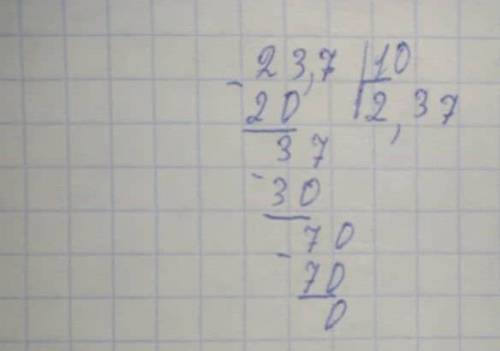 23,7 10
- 20 2,37
37
- 30
70
- 70
0